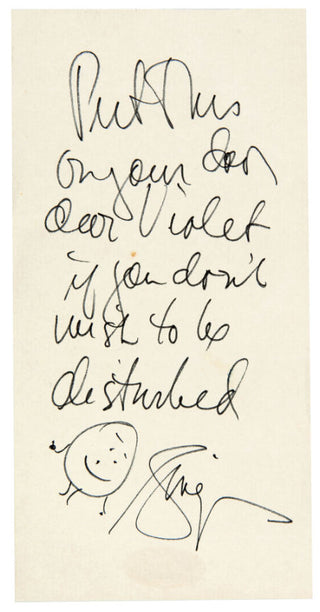 Put This
on your door
dear Violet
if you don't
wish to be
disturbed